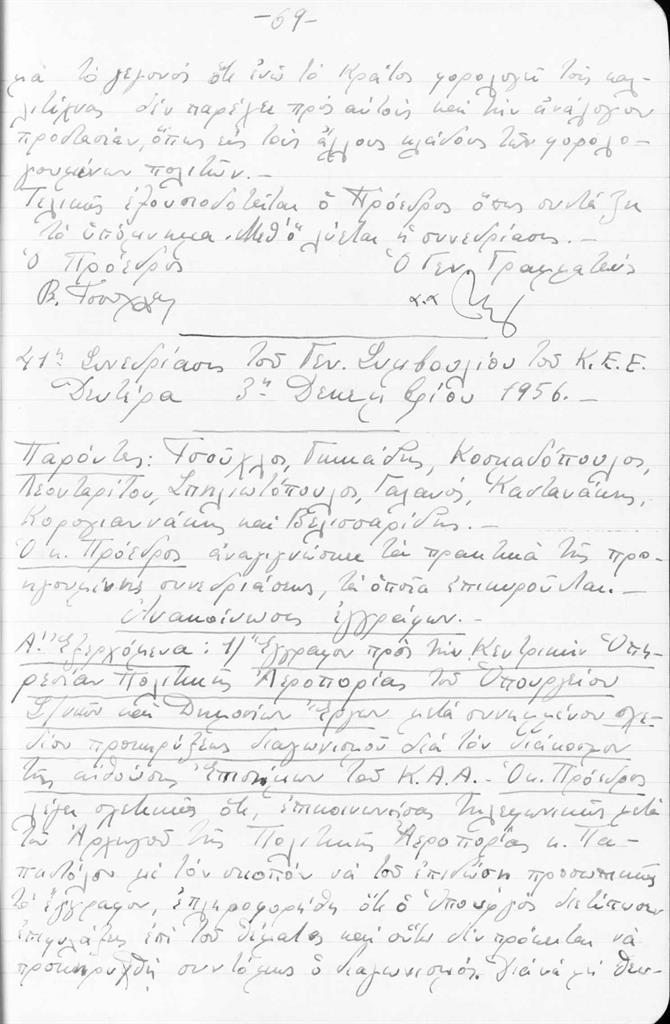 -69-
μὲ τὸ γεγονός ὅτι ἐνῶ τὸ Κράτος φορολογεῖ τοὺς καλ-
λιτέχνας δὲν παρέχει πρὸς αὐτοὺς καὶ τὴν ἀνάλογον
προστασίαν, ὅπως εἰς τοὺς ἄλλους κλάδους τῶν φορολο-
γουμένων πολιτῶν.-
Τελικῶς ἐξουσιοδοτεῖται ὁ Πρόεδρος ὅπως συντάξῃ
τὸ ὑπόμνημα. Μεθ' ὅ λύεται ἡ συνεδρίασις.-
Ὁ Πρόεδρος Ὁ Γεν. Γραμματεύς
Β. Τσοῦχλος κ.κ
41η Συνεδρίασις τοῦ Γεν. Συμβουλίου τοῦ Κ.Ε.Ε.
Δευτέρα 3η Δεκεμβρίου 1956.-
Παρόντες: Τσοῦχλος, Κοσμαδόπουλος,
Λεονταρίτου, Σπηλιωτόπουλος, Γαλανός, Καστανάκης,
Κορογιαννάκης καὶ Βελισσαρίδης.-
Ὁ κ. Πρόεδρος ἀναγιγνώσκει τὰ πρακτικὰ τῆς προ-
ηγουμένης συνεδριάσεως, τὰ ὁποῖα ἐπικυροῦνται.-
Ἀνακοίνωσις ἐγγράφων.-
Α.' Ἐξερχόμενα: 1/ Ἔγγραφον πρὸς τὴν Κεντρικὴν Ὑπη-
ρεσίαν Πολιτικῆς Ἀεροπορίας τοῦ Ὑπουργείου
Σ/νιῶν καὶ Δημοσίων Ἔργων μετὰ συνημμένου σχε-
δίου προκηρύξεως διαγωνισμοῦ διὰ τὸν διάκοσμον
τῆς αἰθούσης Ἐπισήμων τοῦ Κ.Α.Α.- Ὁ κ. Πρόεδρος
λέγει σχετικῶς ὅτι, ἐπικοινωνήσας τηλεφωνικῶς μετὰ
τοῦ Ἀρχηγοῦ τῆς Πολιτικῆς Ἀεροπορίας κ. Πα-
μὲ τὸν σκοπὸν νὰ τοῦ ἐπιδώσῃ προσωπικῶς
τὸ ἔγγραφον, ἐπληροφορήθη ὅτι ὁ Ὑπουργὸς διετύπωσεν
ἐπιφυλάξεις ἐπὶ τοῦ θέματος καὶ οὕτω δὲν πρόκειται νὰ
προκηρυχθῇ συντόμως ὁ διαγωνισμός. Διὰ νὰ μὴ θεω-